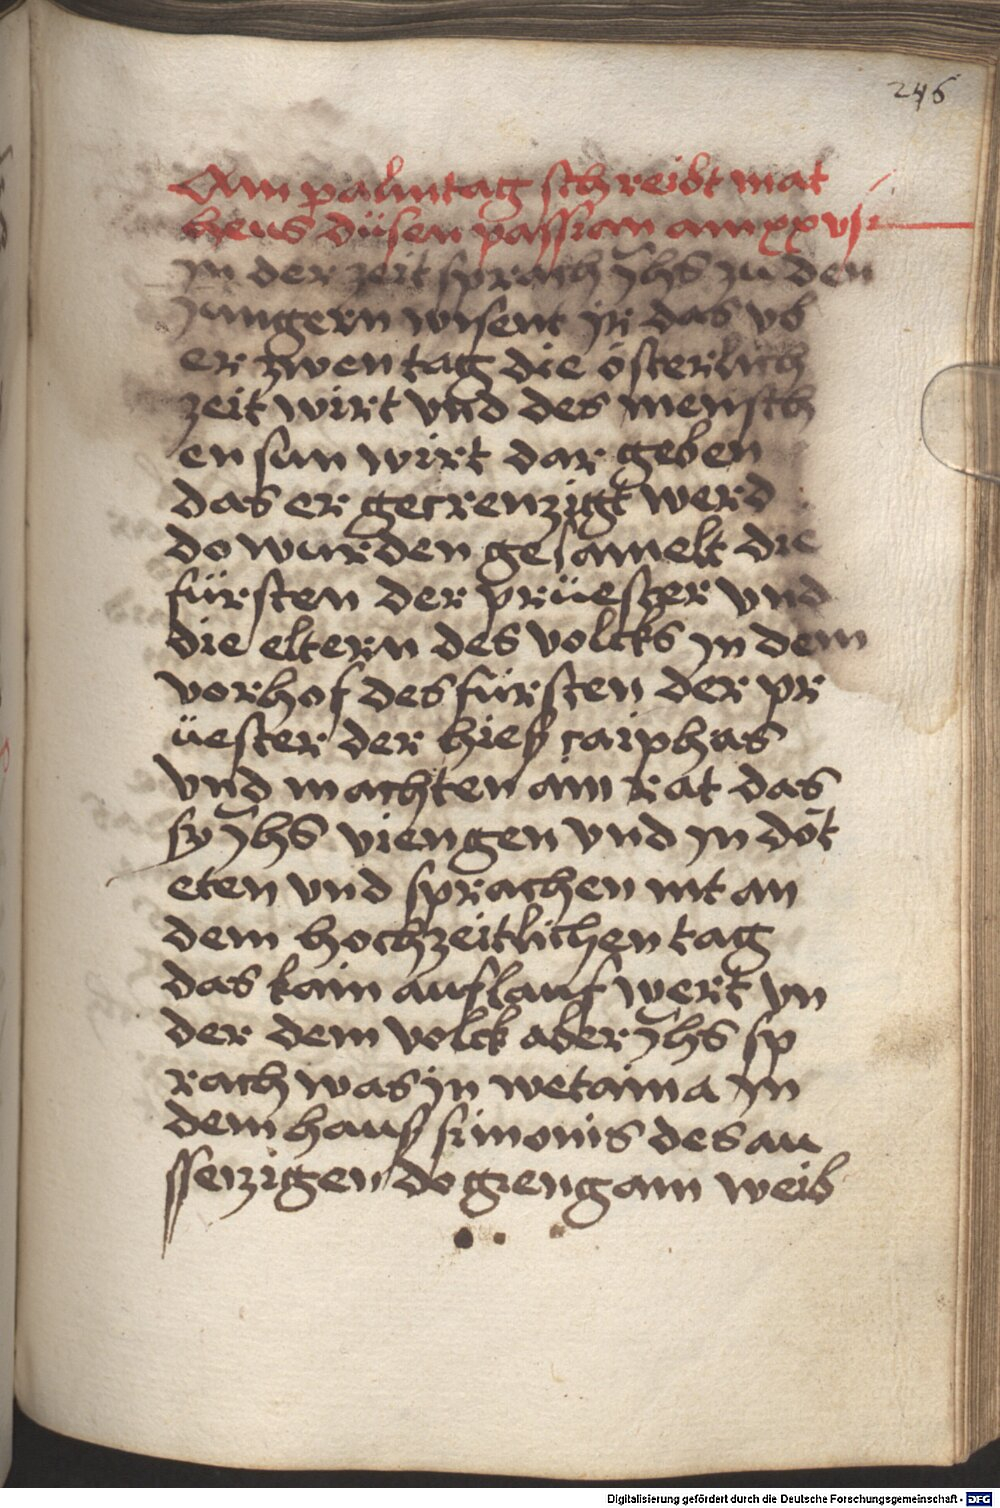 246
Am palmtag schreibt mat
heus düsen passion am xxvj
In der zeit sprach Jhs zu den
Jungern wisent jr das vb
er zwen tag die österlich
zeit wirt vnd des mensch
en sun wirt dar geben
das er gecrenzigt werd
do wurden gesamelt die
fürsten der prüester vnd
die eltern des volcks jn dem
vorhof des fürsten der pr
üester der hies caiphas
vnd machten ain rat das
sy Jhs viengen vnd jn döt
eten vnd sprachen nit an
dem hochzeitlichen tag
das kain auflauf wert vn
der dem volck aber Jhs sp
rach was jn wetania jn
dem haus simonis des au
sseizigen do gieng ain weib
Digitalisierung gefördert durch die Deutsche Forschungsgemeinschaft - DFG